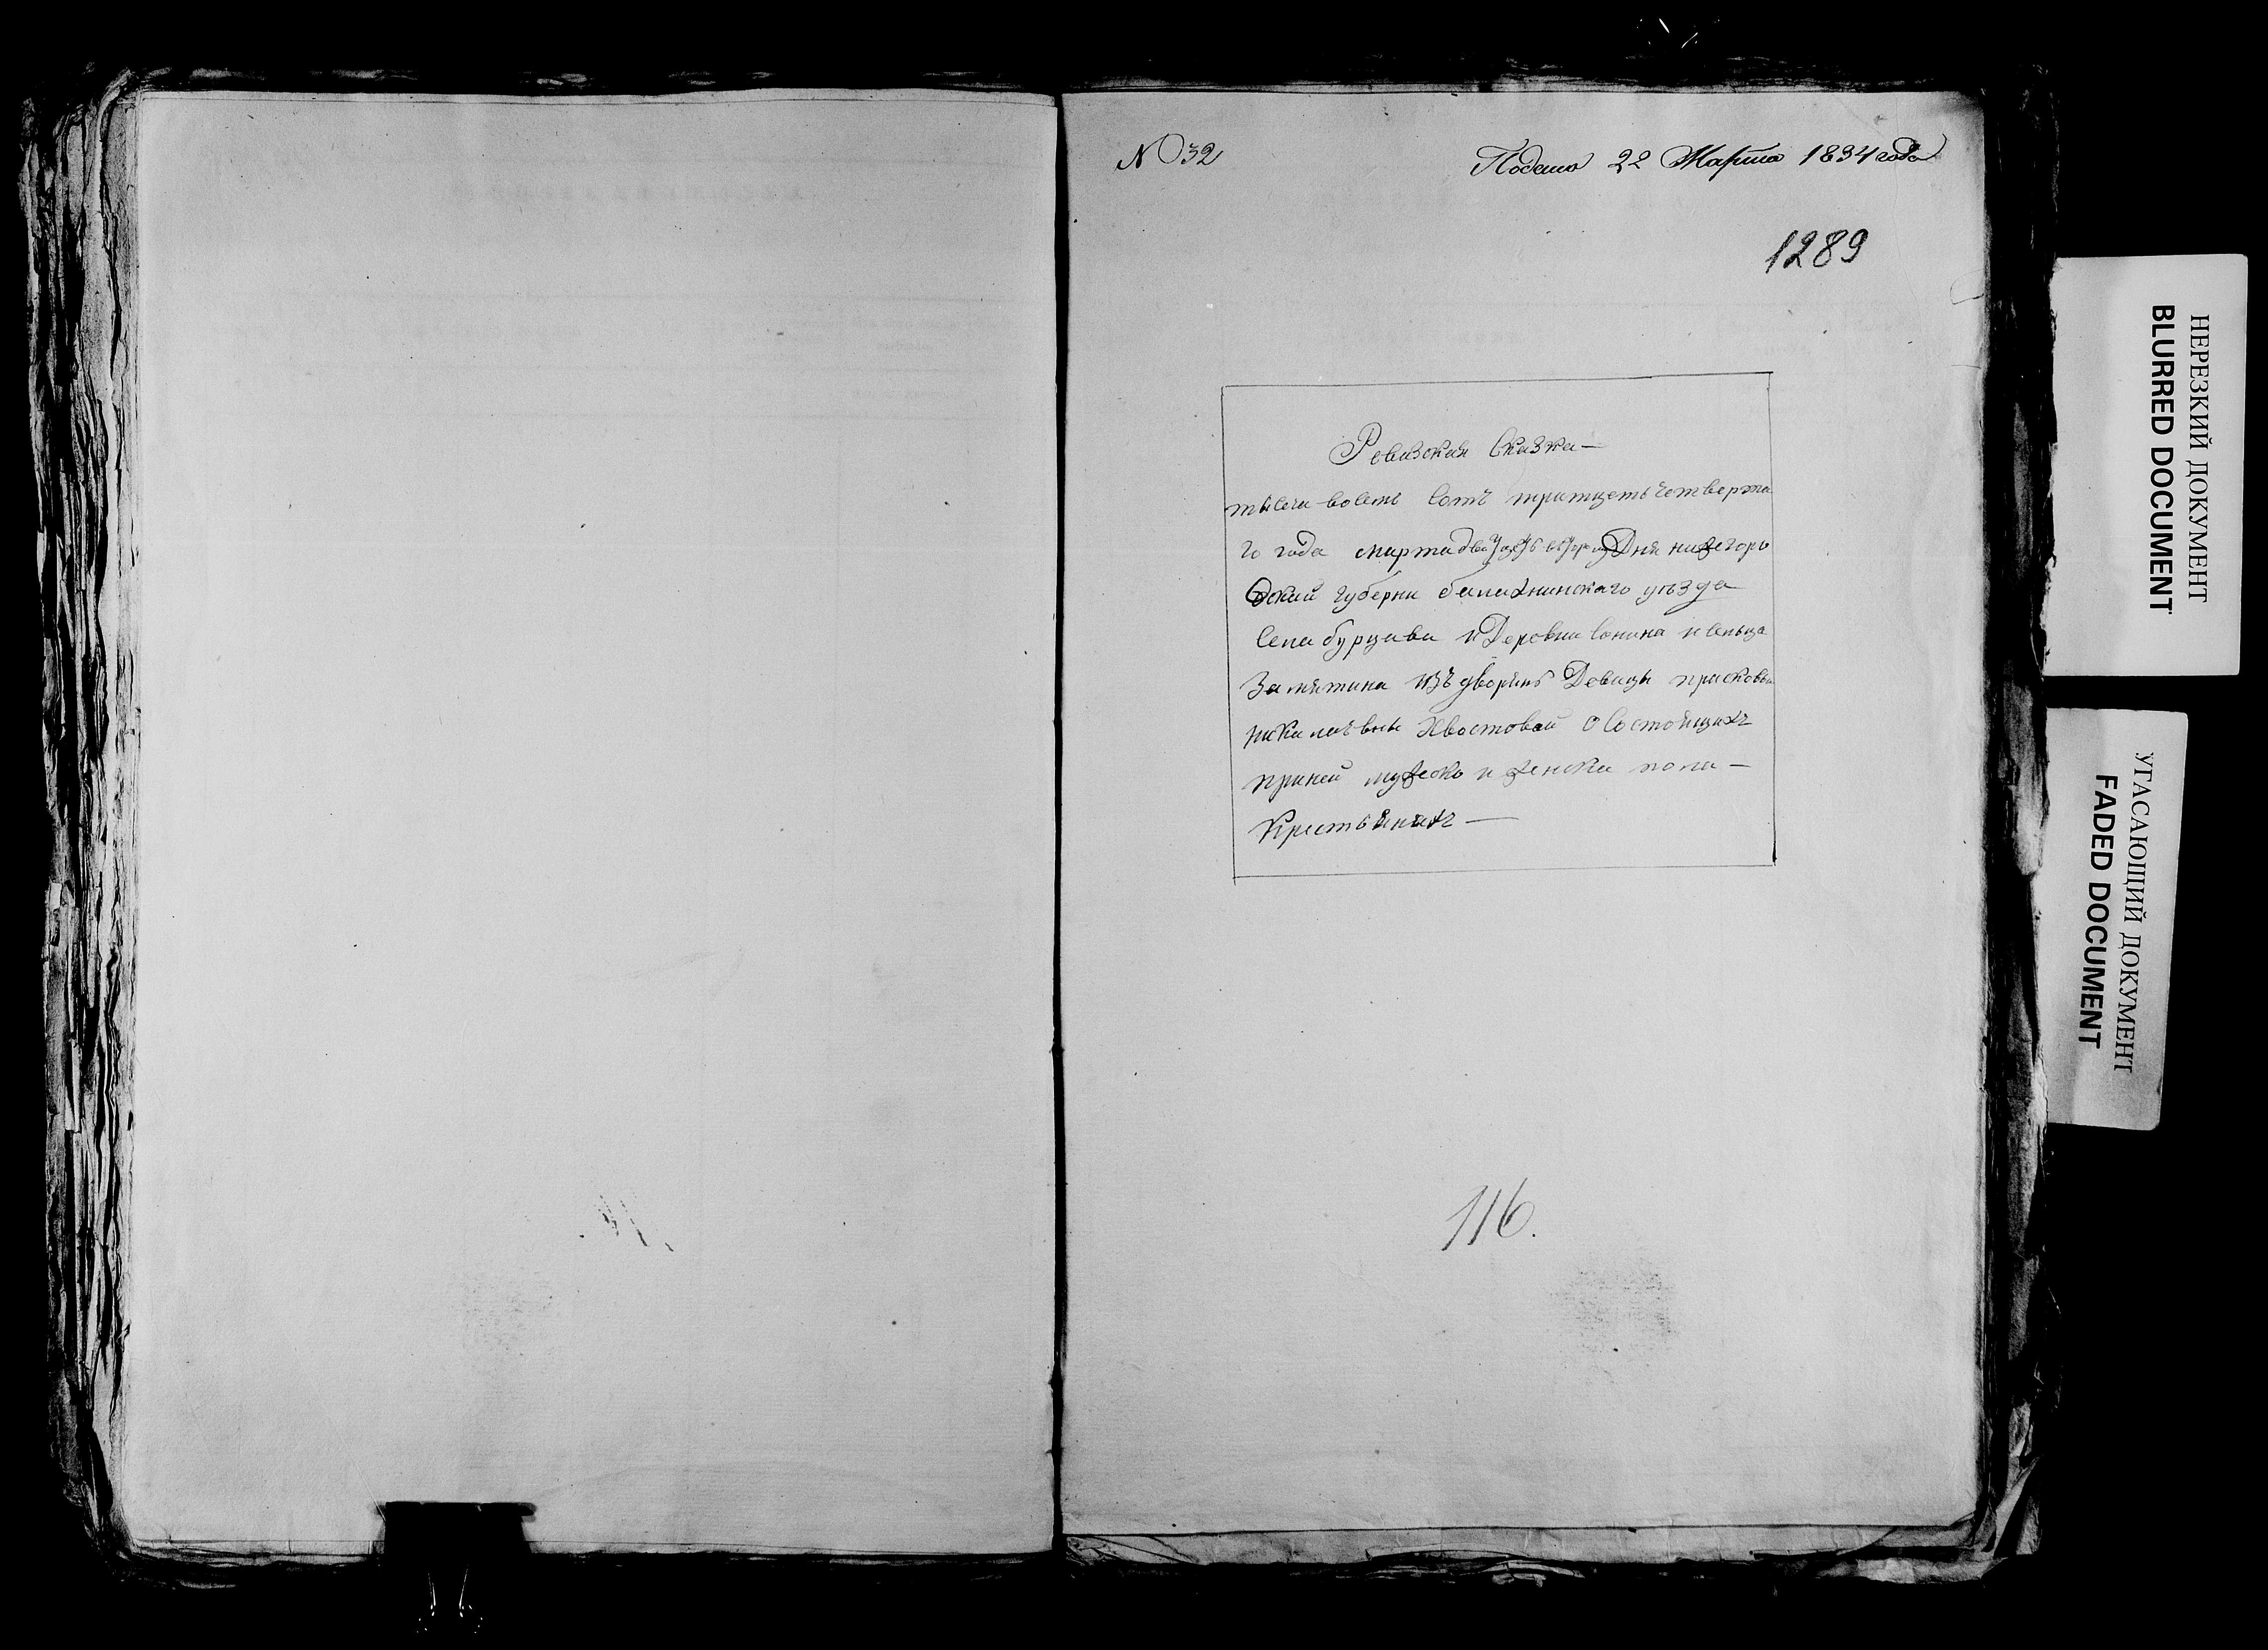 N 32
Подана 22 Марта 1834 года
1289
Ревизская Сказка—
тысеча восемь сотъ тритцеть четверта
го года марта двадцеть втораго Дня нижегоро
дской губерни балахнинскаго уезда
Села бурцева и Деревни Сонина и сельца
Замятина изъ дворянъ Девицы прасковьи
николаевны Хвостовой о Состоящихъ
приней мужеско и женска пола —
Крестьянахъ —
116.
НЕРЕЗКИЙ ДОКУМЕНТ
BLURRED DOCUMENT
УГАСАЮЩИЙ ДОКУМЕНТ
FADED DOCUMENT